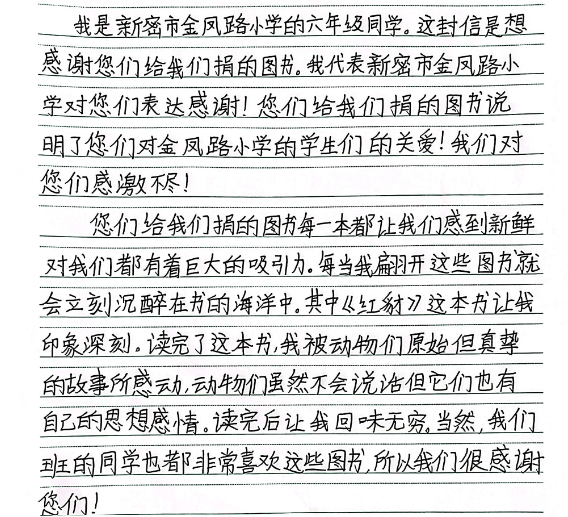 我是新密市金凤路小学的六年级同学。这封信是想
感谢您们给我们捐的图书。我代表新密市金凤路小
学对您们表达感谢！您们给我们捐的图书说
明了您们对金凤路小学的学生们的关爱！我们对
您们感激不尽！
您们给我们捐的图书每一本都让我们感到新鲜
对我们都有着巨大的吸引力。每当我翻开这些图书就
会立刻沉醉在书的海洋中。其中《红豺》这本书让我
印象深刻。读完了这本书，我被动物们原始但真挚
的故事所感动，动物们虽然不会说话但它们也有
自己的思想感情。读完后让我回味无穷。当然，我们
班的同学也都非常喜欢这些图书，所以我们很感谢
您们！